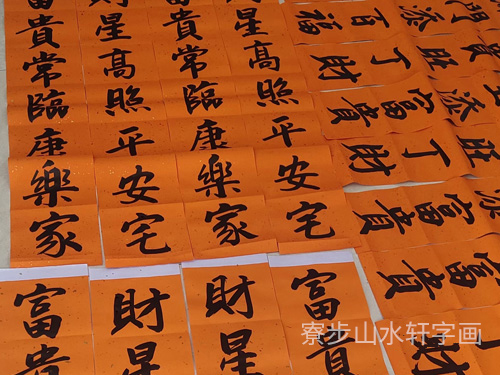 貴常臨康樂家
星高照平安宅
貴常臨康樂家
星高照平安宅
富貴
財星
財星
富貴
百福
門添
丁財
旺
富貴
添
丁財
旺
富貴
添
富貴
財
寮步山水轩字画